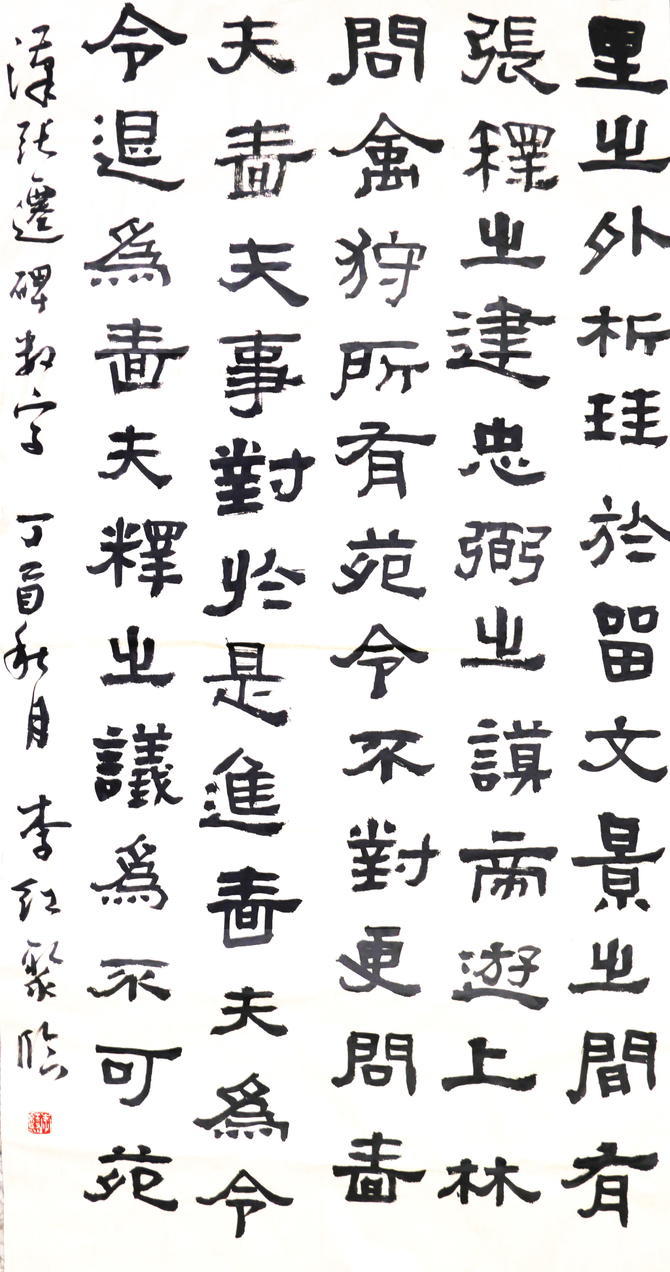 里之外析珪於留文景之間有
張釋之建忠弼之謨帝遊上林
問禽狩所有苑令不對更問嗇
夫嗇夫事對於是進嗇夫爲令
令退爲嗇夫釋之議爲不可苑
漢張遷碑數字 丁酉秋月 李紅聚臨